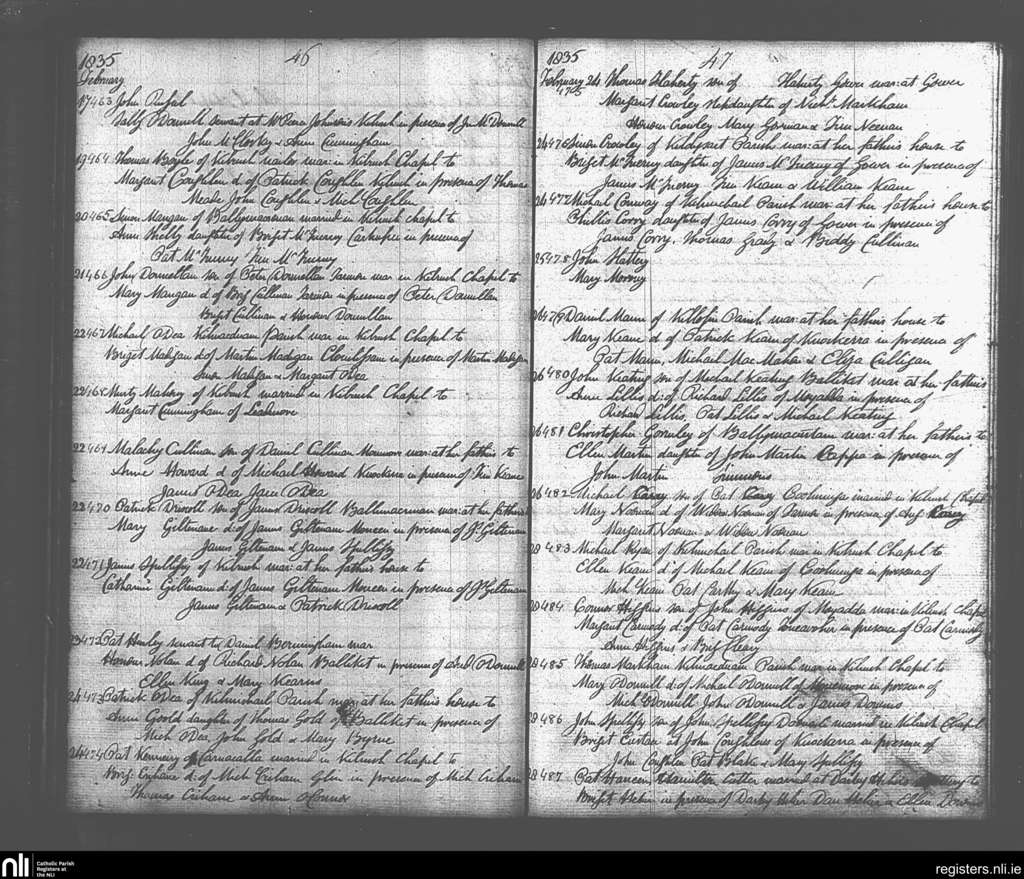 1835
46
February
17 463 John
Sally O Donnell servant at Johnsons Kilrush in presence of Jn Mc Donnell
John Mc Closky & Anne Cunningham
19 464 Thomas Boyle of Kilrush mar: in Kilrush Chapel to
Margaret Coughlen d. of Patrick Coughlen Kilrush in presence of Thomas
Meade John Coughlen & Mich Coughlen
20 465 Simon Mangan of Ballymacrenan married in Kilrush chapel to
Anne Shelly daughter of Bridget Mc Inerny in presence of
Pat Mc Inerny Tim Mc Inerny
21 466 John Donnellan son of Peter Donnellan Farmer mar in Kilrush Chapel to
Mary Mangan d of Brig Culliman Farmer in presence of Peter Donnellan
Briget Culliman & Honour Donnellan
22 467 Michael O Dea Kilmacduan Parish mar in Kilrush Chapel to
Briget Madigan d. of Martin Madigan in presence of Martin Madigan
Madigan & Margaret O Dea
22 468 Murty Malony of Kilrush married in Kilrush Chapel to
Margaret Cunningham of Leadmore
22 469 Malachy Culliman son of Daniel Culliman mar: at her fathers to
Anne Howard d of Michael Howard Knockerra in presence of Tim Keane
James O Dea Jane O Dea
22 470 Patrick Driscoll son of James Driscoll mar: at her fathers
Mary Giltenane d: of James Giltenan Moneen in presence of Jn Giltenan
James Giltenan & James Spellisy
22 471 James Spellisy of Kilrush mar: at her fathers house to
Catharine Giltenan d of James Giltenan Moneen in presence of Jn Giltenan
James Giltenan & Patrick Driscoll
23 472 Pat Hurley servant to Daniel Bermingham mar
Honour Nolan d. of Richard Nolan Balliket in presence of O Donnell
Ellen King & Mary Kearns
24 473 Patrick O Dea of Kilmichael Parish mar: at her fathers house to
Anne Goold daughter of Thomas Gold of Balliket in presence of
Mich O Dea, John Gold & Mary Byrne
24 474 Pat of Carnacalla married in Kilrush Chapel to
Brig. Crehane d: of Mich Crehan Glin in presence of Mich Crehane
Thomas Crehane & Anne O Connor
1835
47
February 24 475 Thomas Flaherty son of Flaherty Gower mar: at Gower
Margaret Crowley stepdaughter of Nichs. Markham
Honour Crowley Mary Gorman & Tim Neenan
24 476 Simon Crowley of Kildysart Parish mar: at her fathers house to
Briget Mc Inerny daughter of James Mc Inerny of Gower in presence of
James Mc Inerny Tim Keane & William Keane
24 477 Michael Conway of Kilmichael Parish mar: at her fathers house to
Chillis Corry daughter of James Corry of Gower in presence of
James Corry, Thomas Grady & Biddy Culliman
25 478 John Slattery
Mary Morony
26 479 Daniel Mann of Killofin Parish mar: at her fathers house to
Mary Keane d: of Patrick Keane of Knockerra in presence of
Pat Mann, Michael Mac Mahon & Eliza Culligan
26 480 John Keating son of Michael Keating Balliket mar at her fathers
Anne Lillis d: of Richard Lillis of Moyadda in presence of
Richard Lillis, Pat Lillis & Michael Keating
26 481 Christopher Gormley of Ballymacurtan mar: at her fathers to
Ellen Martin daughter of John Martin Cappa in presence of
John Martin Simmons
26 482 Michael Carey son of Pat Carey married in Kilrush Chapel
Mary Noonan d: of Widow Noonan of Farmer in presence of Carey
Margaret Noonan & Widow Noonan
28 483 Michael Ryan of Kilmichael Parish mar in Kilrush Chapel to
Ellen Keane d. of Michael Keane of in presence of
Mich Keane Pat Carthy & Mary Keane
28 484 Connor Higgins son of John Higgins of Moyadda mar: in Kilrush Chapel
Margaret Carmody d: of Pat Carmody in presence of Pat Carmody
Anne Higgins & Brig Cleary
28 485 Thomas Markham Kilmacduan Parish mar in Kilrush Chapel to
Mary O Donnell d: of Michael O Donnell of in presence of
Mich O Donnell John O Donnell & James Downs
28 486 John Spellisy son of John Spellisy married in Kilrush Chapel
Briget Curtan at John Coughlens of Knockerra in presence of
John Coughlen Pat Blake & Mary Spellisy
28 487 Pat Haneen married at Darby to
Briget in presence of Darby Dan & Ellen Downs
nli
Catholic Parish
Registers at
the NLI
registers.nli.ie